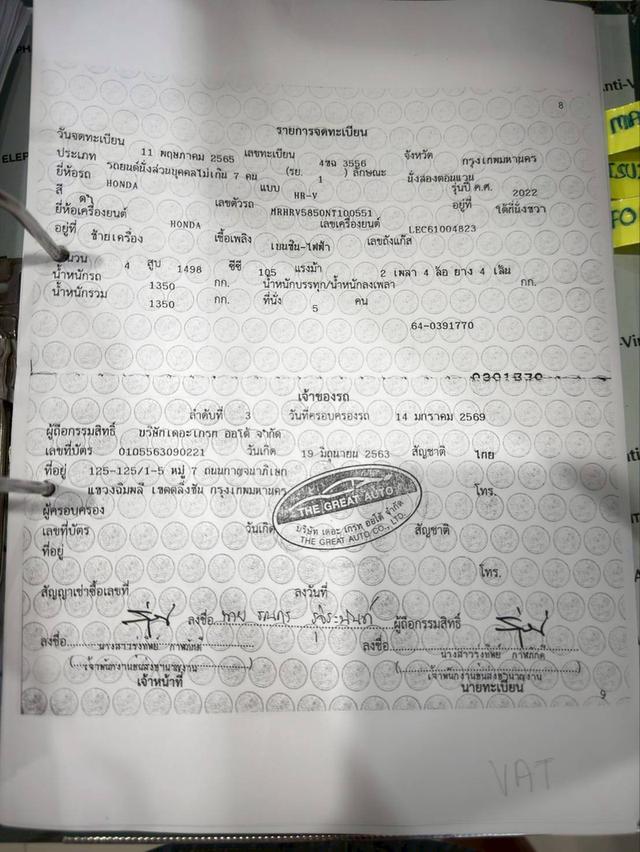 8
รายการจดทะเบียน
วันจดทะเบียน 11 พฤษภาคม 2565 เลขทะเบียน 4ขฉ 3556 จังหวัด กรุงเทพมหานคร
ประเภท รถยนต์นั่งส่วนบุคคลไม่เกิน 7 คน (รย. 1 ) ลักษณะ นั่งสองตอนแวน
ยี่ห้อรถ HONDA แบบ HR-V รุ่นปี ค.ศ. 2022
สี ดำ เลขตัวรถ MRHRV5850NT100551 อยู่ที่ ใต้ที่นั่งขวา
ยี่ห้อเครื่องยนต์ HONDA เลขเครื่องยนต์ LEC61004823
อยู่ที่ ซ้ายเครื่อง เชื้อเพลิง เบนซิน-ไฟฟ้า เลขถังแก๊ส
จำนวน 4 สูบ 1498 ซีซี 105 แรงม้า 2 เพลา 4 ล้อ ยาง 4 เส้น
น้ำหนักรถ 1350 กก. น้ำหนักบรรทุก/น้ำหนักลงเพลา กก.
น้ำหนักรวม 1350 กก. ที่นั่ง 5 คน
64-0391770
เจ้าของรถ
ลำดับที่ 3 วันที่ครอบครองรถ 14 มกราคม 2569
ผู้ถือกรรมสิทธิ์ บริษัทเดอะเกรท ออโต้ จำกัด
เลขที่บัตร 0105563090221 วันเกิด 19 มิถุนายน 2563 สัญชาติ ไทย
ที่อยู่ 125-125/1-5 หมู่ 7 ถนนกาญจนาภิเษก
แขวงฉิมพลี เขตตลิ่งชัน กรุงเทพมหานคร โทร.
THE GREAT AUTO
บริษัท เดอะ เกรท ออโต้ จำกัด
THE GREAT AUTO CO., LTD.
ผู้ครอบครอง
เลขที่บัตร วันเกิด สัญชาติ
ที่อยู่
โทร.
สัญญาเช่าซื้อเลขที่ ลงวันที่
ลงชื่อ ผู้ถือกรรมสิทธิ์
ลงชื่อ ลงชื่อ
นางสาวรุ่งทิพย์ กาฬภักดี นางสาวรุ่งทิพย์ กาฬภักดี
(เจ้าพนักงานขนส่งชำนาญงาน) (เจ้าพนักงานขนส่งชำนาญงาน)
เจ้าหน้าที่ นายทะเบียน
9
VAT